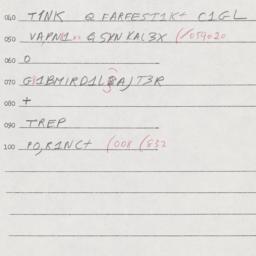 040 T1NK Q FARFEST1K+ C1GL
050 VA,PN1 Q SYN KAL3X (/059020
060 O
070 G1BMIRD1L A) T3R
080 +
090 TREP
100 PO,R1NC+ (008 (832